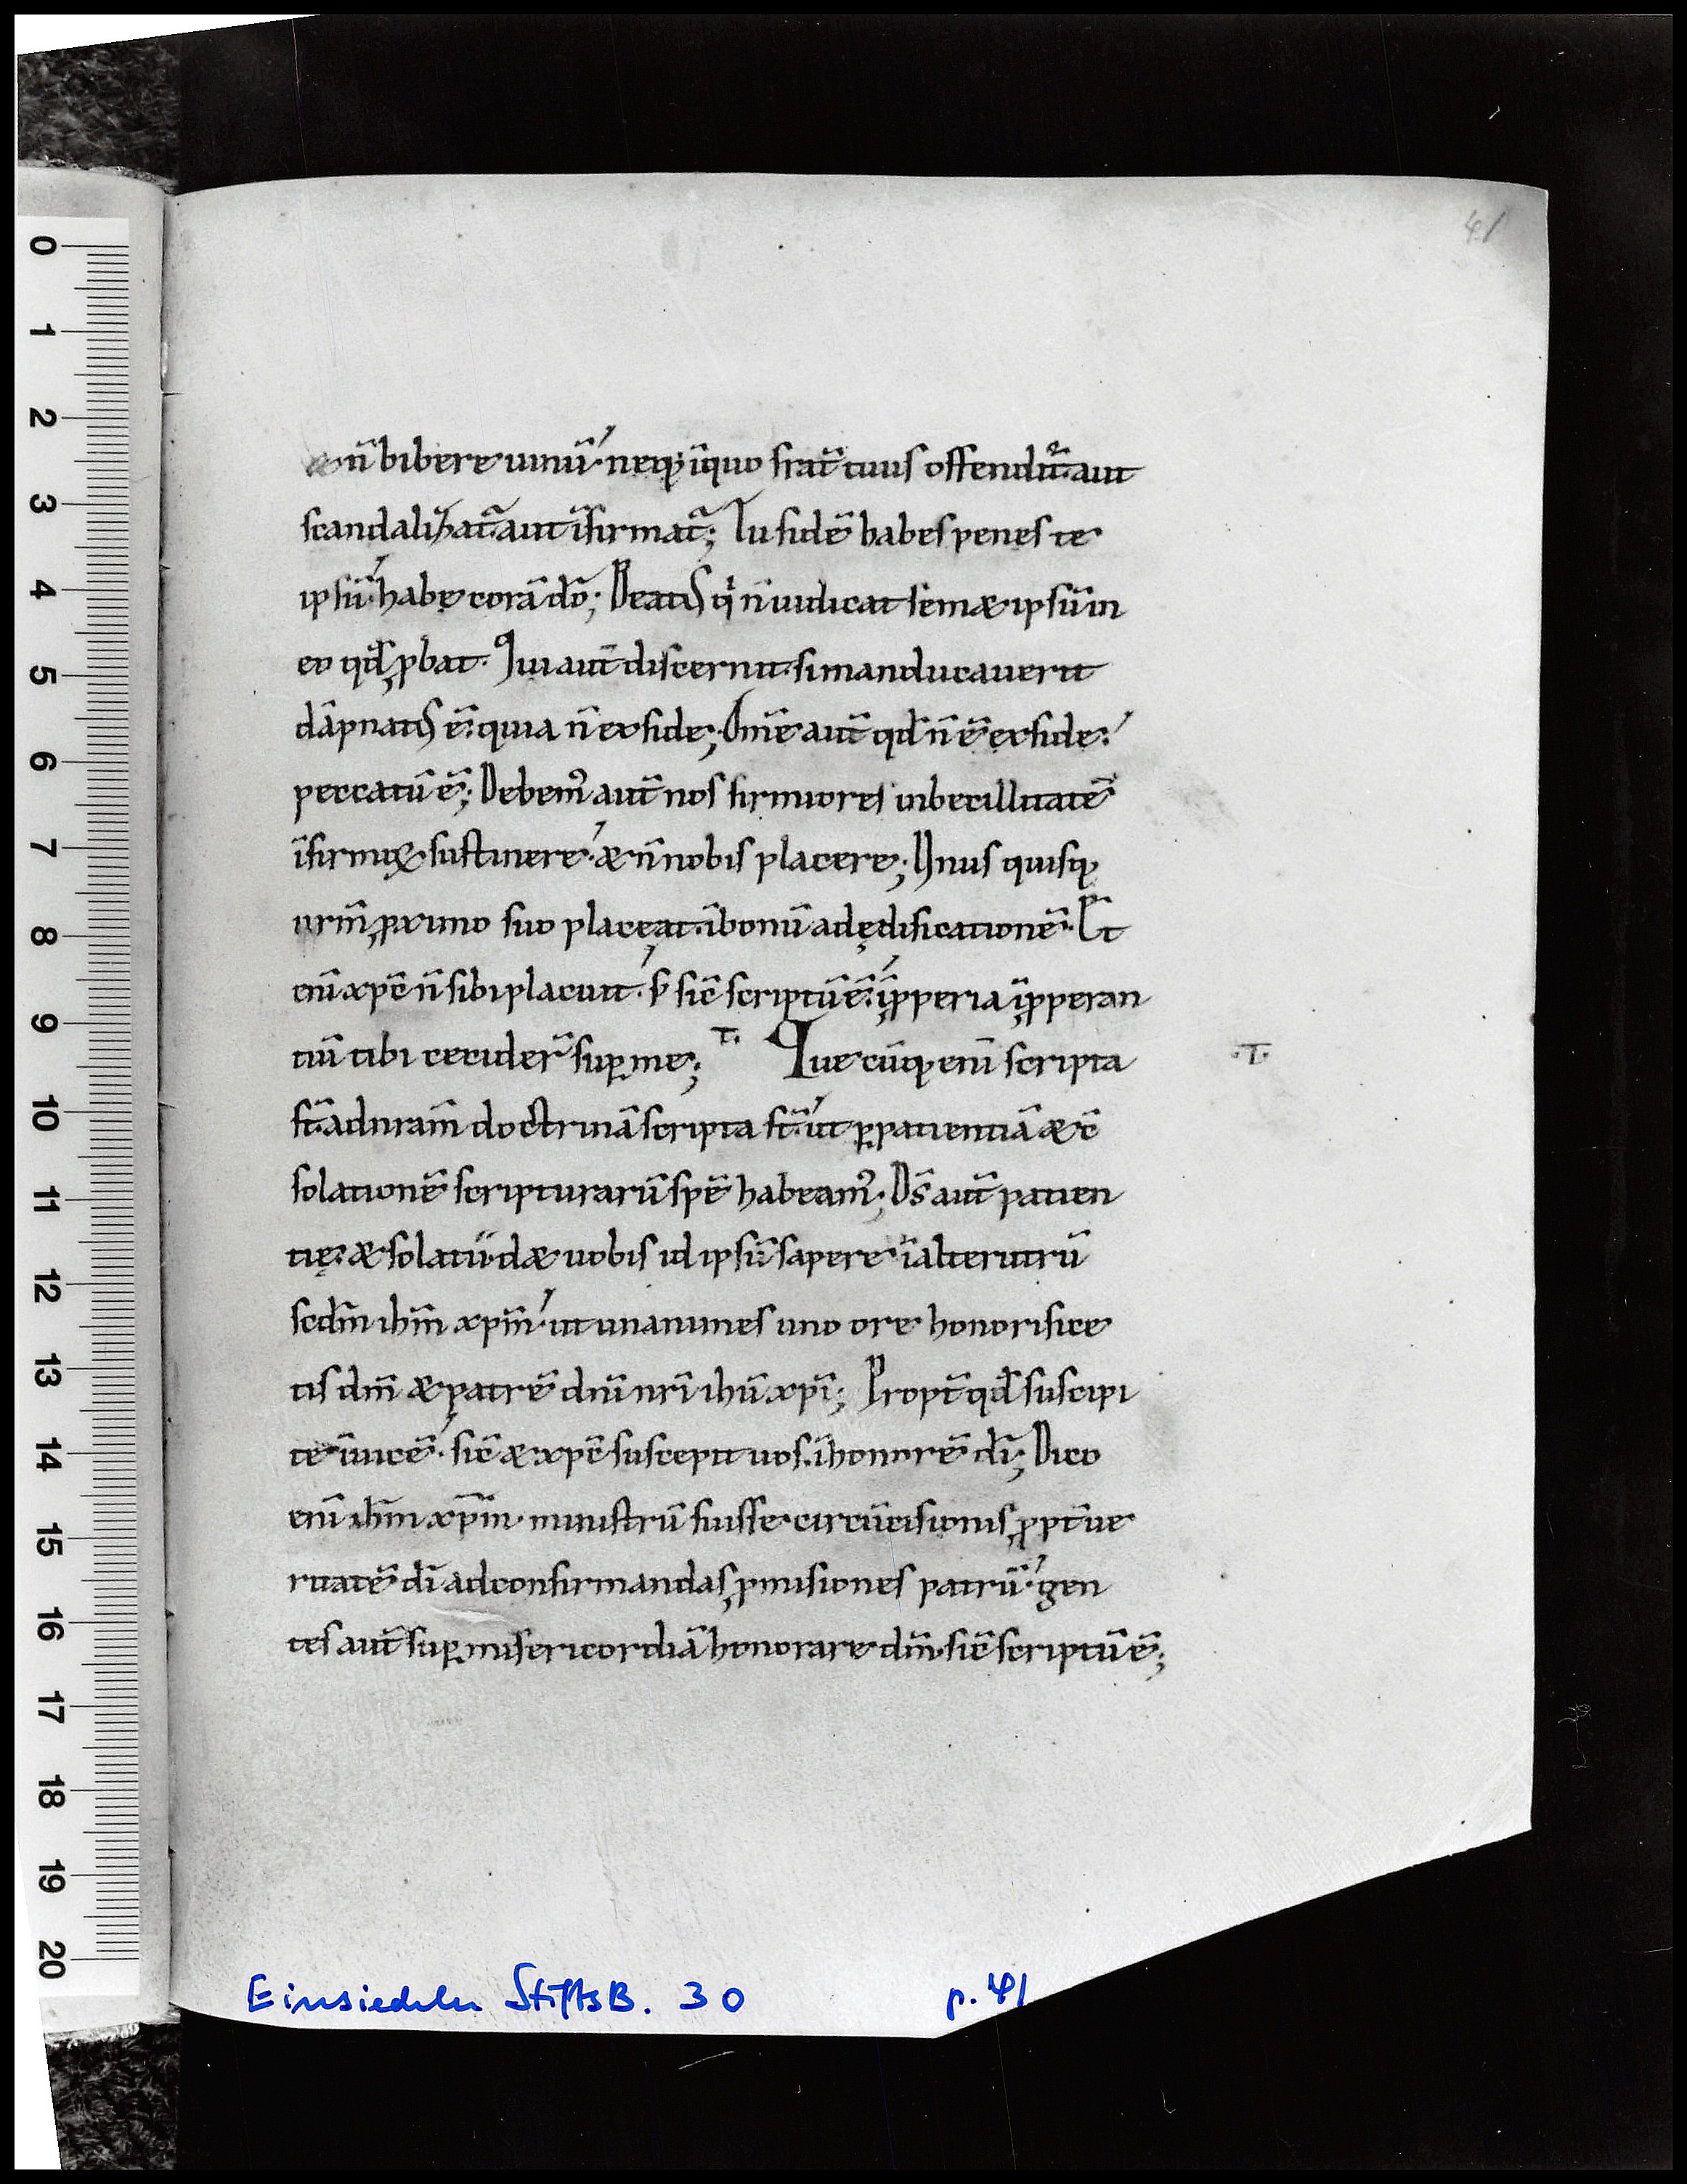 41
& n̄ bibere uinū· neq; ī quo frat̄ tuus offendit̄· aut
scandalizat̄· aut īfirmat̄; Tu fidē habes penes te
ipsū· habe corā dō; Beatus qi n̄ iudicat semæ ipsū in
eo qd̄ ꝓbat· Qui aut̄ discernit· si manducauerit
dāpnatus ē· quia n̄ ex fide; Om̄e aut̄ qd̄ n̄ ē ex fide·
peccatū ē; Debem᾿ aut̄ nos firmiores inbecillitatē
īfirmoꝝ sustinere· & n̄ nobis placere; Vnus quisq;
urm̄ ꝓximo suo placeat· ī bonū ad ędificationē· Et̄
enī xpc̄ n̄ sibi placuit· s; sic̄ scriptū ē· īꝓperia īꝓperan
tiū tibi cecider̄ suꝑ me; T· Que cūq; enī scripta ·T·
st̄· ad nram̄ doctrinā scripta st̄· ut ꝑ patientiā & c̄
solationē scripturarū spē habeam᾿; Ds̄ aut̄ patien
tię· & solatii· dæ uobis id ipsū sapere ī alterutrū
scdm̄ ihm̄ xpm̄· ut unanimes uno ore honorifice
tis dm̄ & patrē dn̄i nrī ihū xpī; Propt̄ qd̄ suscipi
te īuicē· sic̄ & xpc̄ suscepit uos· ī honorē dī; Dico
enī ihm̄ xpm̄· ministrū fuisse circūcisionis ꝓpt̄ ue
ritatē dī ad confirmandas ꝓmisiones patrū· gen
tes aut̄ suꝑ misericordiā honorare dm̄· sic̄ scriptū ē;
Einsiedeln StiftsB. 30 p. 41
0
1
2
3
4
5
6
7
8
9
10
11
12
13
14
15
16
17
18
19
20